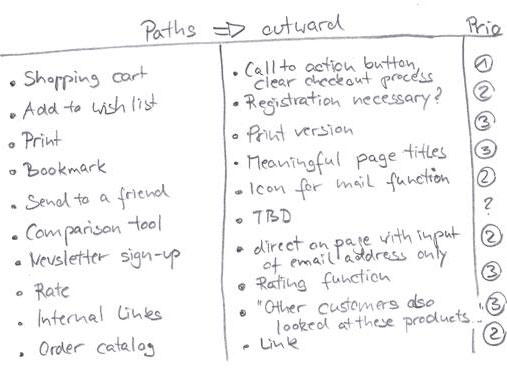 Paths ⇒ outward Prio
• Shopping cart • Call to action button, clear checkout process ①
• Add to wish list • Registration necessary? ②
• Print • Print version ③
• Bookmark • Meaningful page titles ③
• Send to a friend • Icon for mail function ②
• Comparison tool • TBD ?
• Newsletter sign-up • direct on page with input of email address only ②
• Rate • Rating function ③
• Internal Links • "Other customers also looked at these products..." ③
• Order catalog • Link ②